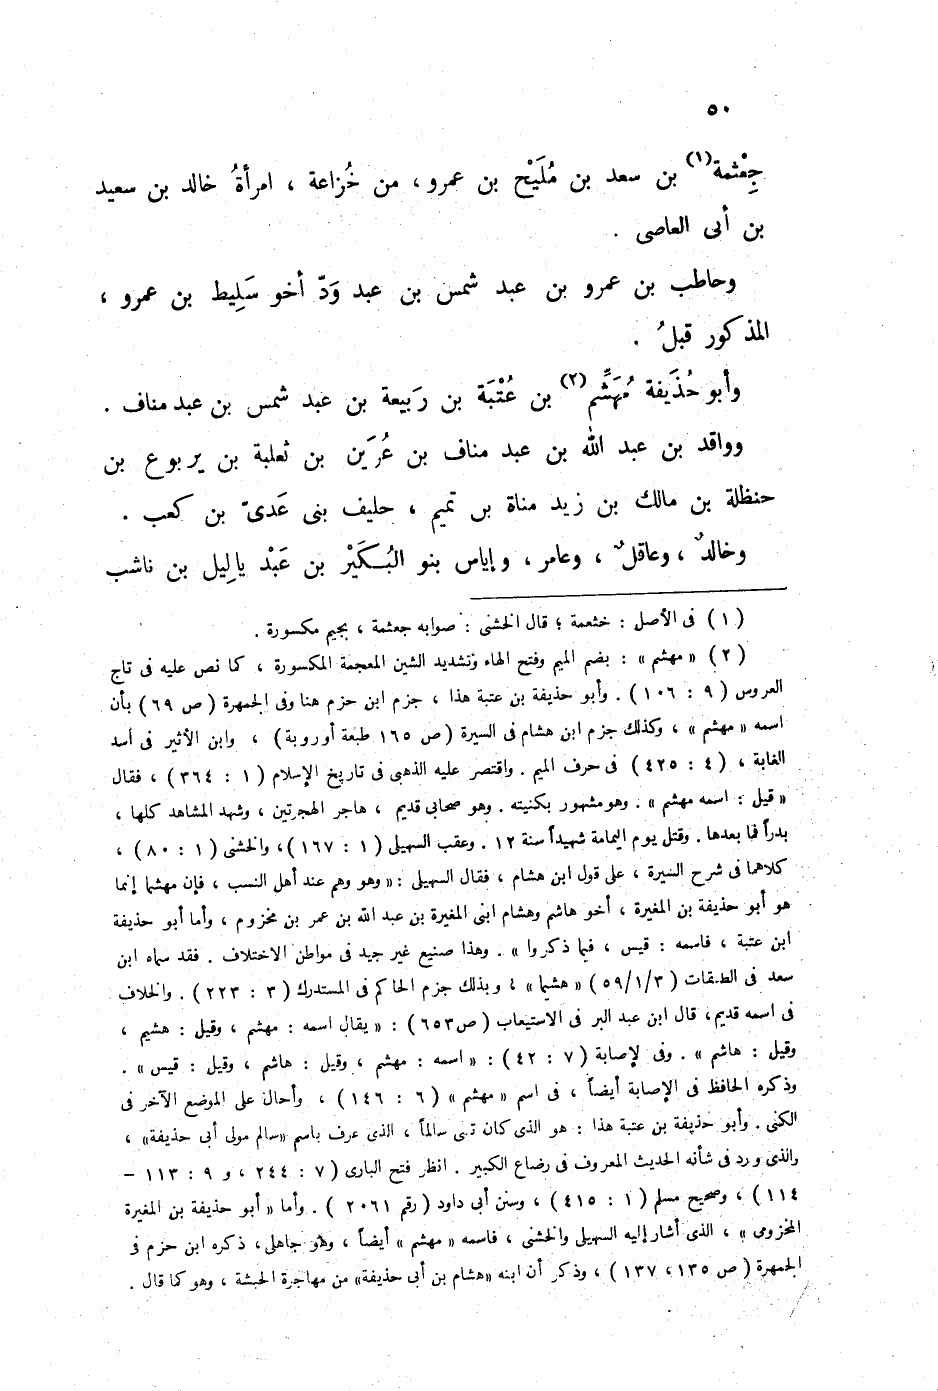 ٥٠
جِعْثمة(١) بن سعد بن مُلَيْح بن عمرو، من خُزاعة ، امرأةُ خالد بن سعيد
بن أبى العاصى .
وحاطب بن عمرو بن عبد شمس بن عبد وَدّ أخو سَلِيط بن عمرو ،
المذكور قبلُ .
وأبو حُذَيفة مُهَشِّم(٢) بن عُتْبَة بن رَبيعة بن عبد شمس بن عبد مناف .
وواقد بن عبد الله بن عبد مناف بن عُرَين بن ثعلبة بن يربوع بن
حنظلة بن مالك بن زيد مناة بن تميم ، حليف بنى عَدىّ بن كعب .
وخالدٌ ، وعاقلٌ ، وعامر ، وإياس بنو البُكَيْر بن عَبْد ياليل بن ناشب
(١) فى الأصل : خثعمة ؛ قال الخشنى : صوابه جعثمة ، بجيم مكسورة .
(٢) « مهشم » : بضم الميم وفتح الهاء وتشديد الشين المعجمة المكسورة ، كما نص عليه فى تاج
العروس (٩ : ١٠٦) . وأبو حذيفة بن عتبة هذا ، جزم ابن حزم هنا وفى الجمهرة (ص ٦٩) بأن
اسمه « مهشم » ، وكذلك جزم ابن هشام فى السيرة (ص ١٦٥ طبعة أوروبة) ، وابن الأثير فى أسد
الغابة ، (٤ : ٤٢٥) فى حرف الميم . واقتصر عليه الذهبى فى تاريخ الإسلام (١ : ٣٦٤) ، فقال
« قيل : اسمه مهشم » . وهو مشهور بكنيته . وهو صحابى قديم ، هاجر الهجرتين ، وشهد المشاهد كلها ،
بدراً فما بعدها . وقتل يوم اليمامة شهيداً سنة ١٢ . وعقب السهيلى (١ : ١٦٧)، والخشنى (١ : ٨٠) ،
كلاهما فى شرح السيرة ، على قول ابن هشام ، فقال السهيلى : « وهو وهم عند أهل النسب ، فإن مهشما إنما
هو أبو حذيفة بن المغيرة ، أخو هاشم وهشام ابنى المغيرة بن عبد الله بن عمر بن مخزوم ، وأما أبو حذيفة
ابن عتبة ، فاسمه : قيس ، فيما ذكروا » . وهذا صنيع غير جيد فى مواطن الاختلاف . فقد سماه ابن
سعد فى الطبقات (٥٩/١/٣) « هشيما » ؛ وبذلك جزم الحاكم فى المستدرك (٣ : ٢٢٣) . والخلاف
فى اسمه قديم، قال ابن عبد البر فى الاستيعاب (ص ٦٥٣) : « يقال اسمه : مهشم ، وقيل : هشيم ،
وقيل : هاشم » . وفى لإصابة (٧ : ٤٢) : « اسمه : مهشم ، وقيل : هاشم ، وقيل : قيس » .
وذكره الحافظ فى الإصابة أيضاً ، فى اسم « مهشم » (٦ : ١٤٦) ، وأحال على الموضع الآخر فى
الكنى . وأبو حذيفة بن عتبة هذا : هو الذى كان تبنى سالماً ، الذى عرف باسم «سالم مولى أبى حذيفة» ،
والذى ورد فى شأنه الحديث المعروف فى رضاع الكبير . انظر فتح البارى (٧ : ٢٤٤ ، و ٩ : ١١٣ –
١١٤) ، وصحيح مسلم (١ : ٤١٥) ، وسنن أبى داود (رقم ٢٠٦١) . وأما « أبو حذيفة بن المغيرة
المخزومى » ، الذى أشار إليه السهيلى والخشنى ، فاسمه « مهشم » أيضاً ، وهو جاهلى، ذكره ابن حزم فى
الجمهرة (ص ١٣٥، ١٣٧) ، وذكر أن ابنه «هشام بن أبى حذيفة» من مهاجرة الحبشة ، وهو كما قال .